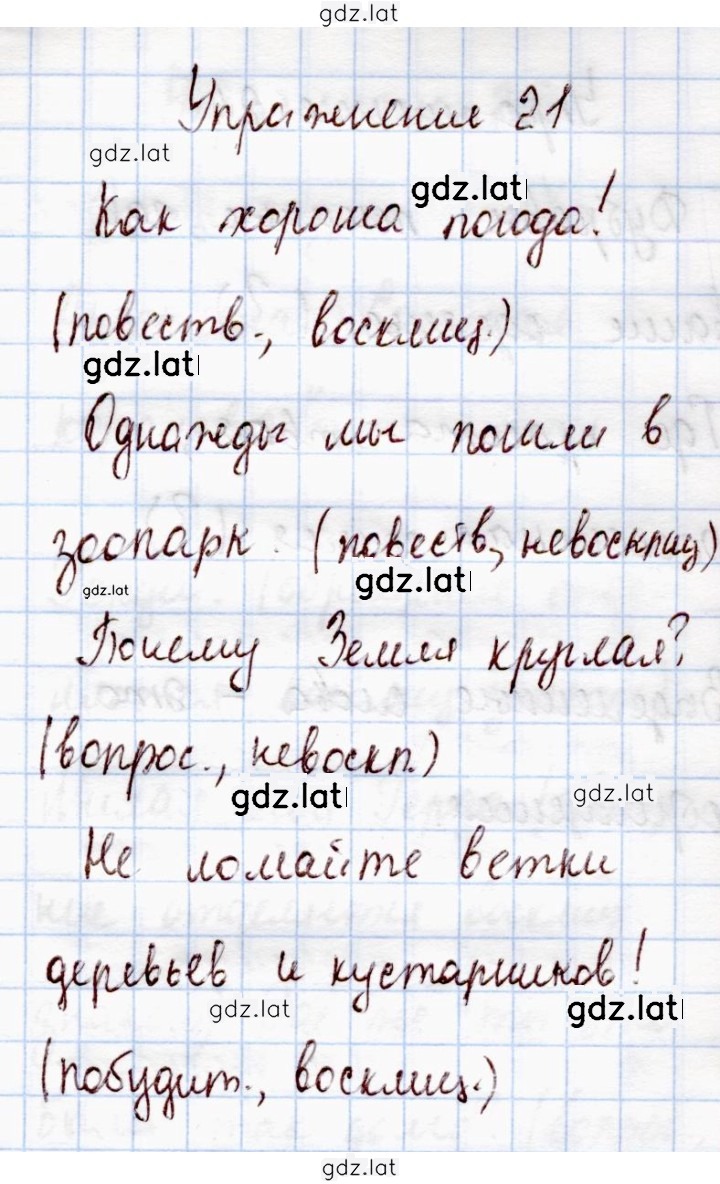 gdz.lat
Упражнение 21
gdz.lat
gdz.lat
Как хороша погода!
(повеств., восклиц.)
gdz.lat
Однажды мы пошли в
зоопарк. (повеств., невосклиц)
gdz.lat
gdz.lat
Почему Земля круглая?
(вопрос., невоскл.)
gdz.lat
gdz.lat
Не ломайте ветки
деревьев и кустарников!
gdz.lat
gdz.lat
(побудит., восклиц.)
gdz.lat